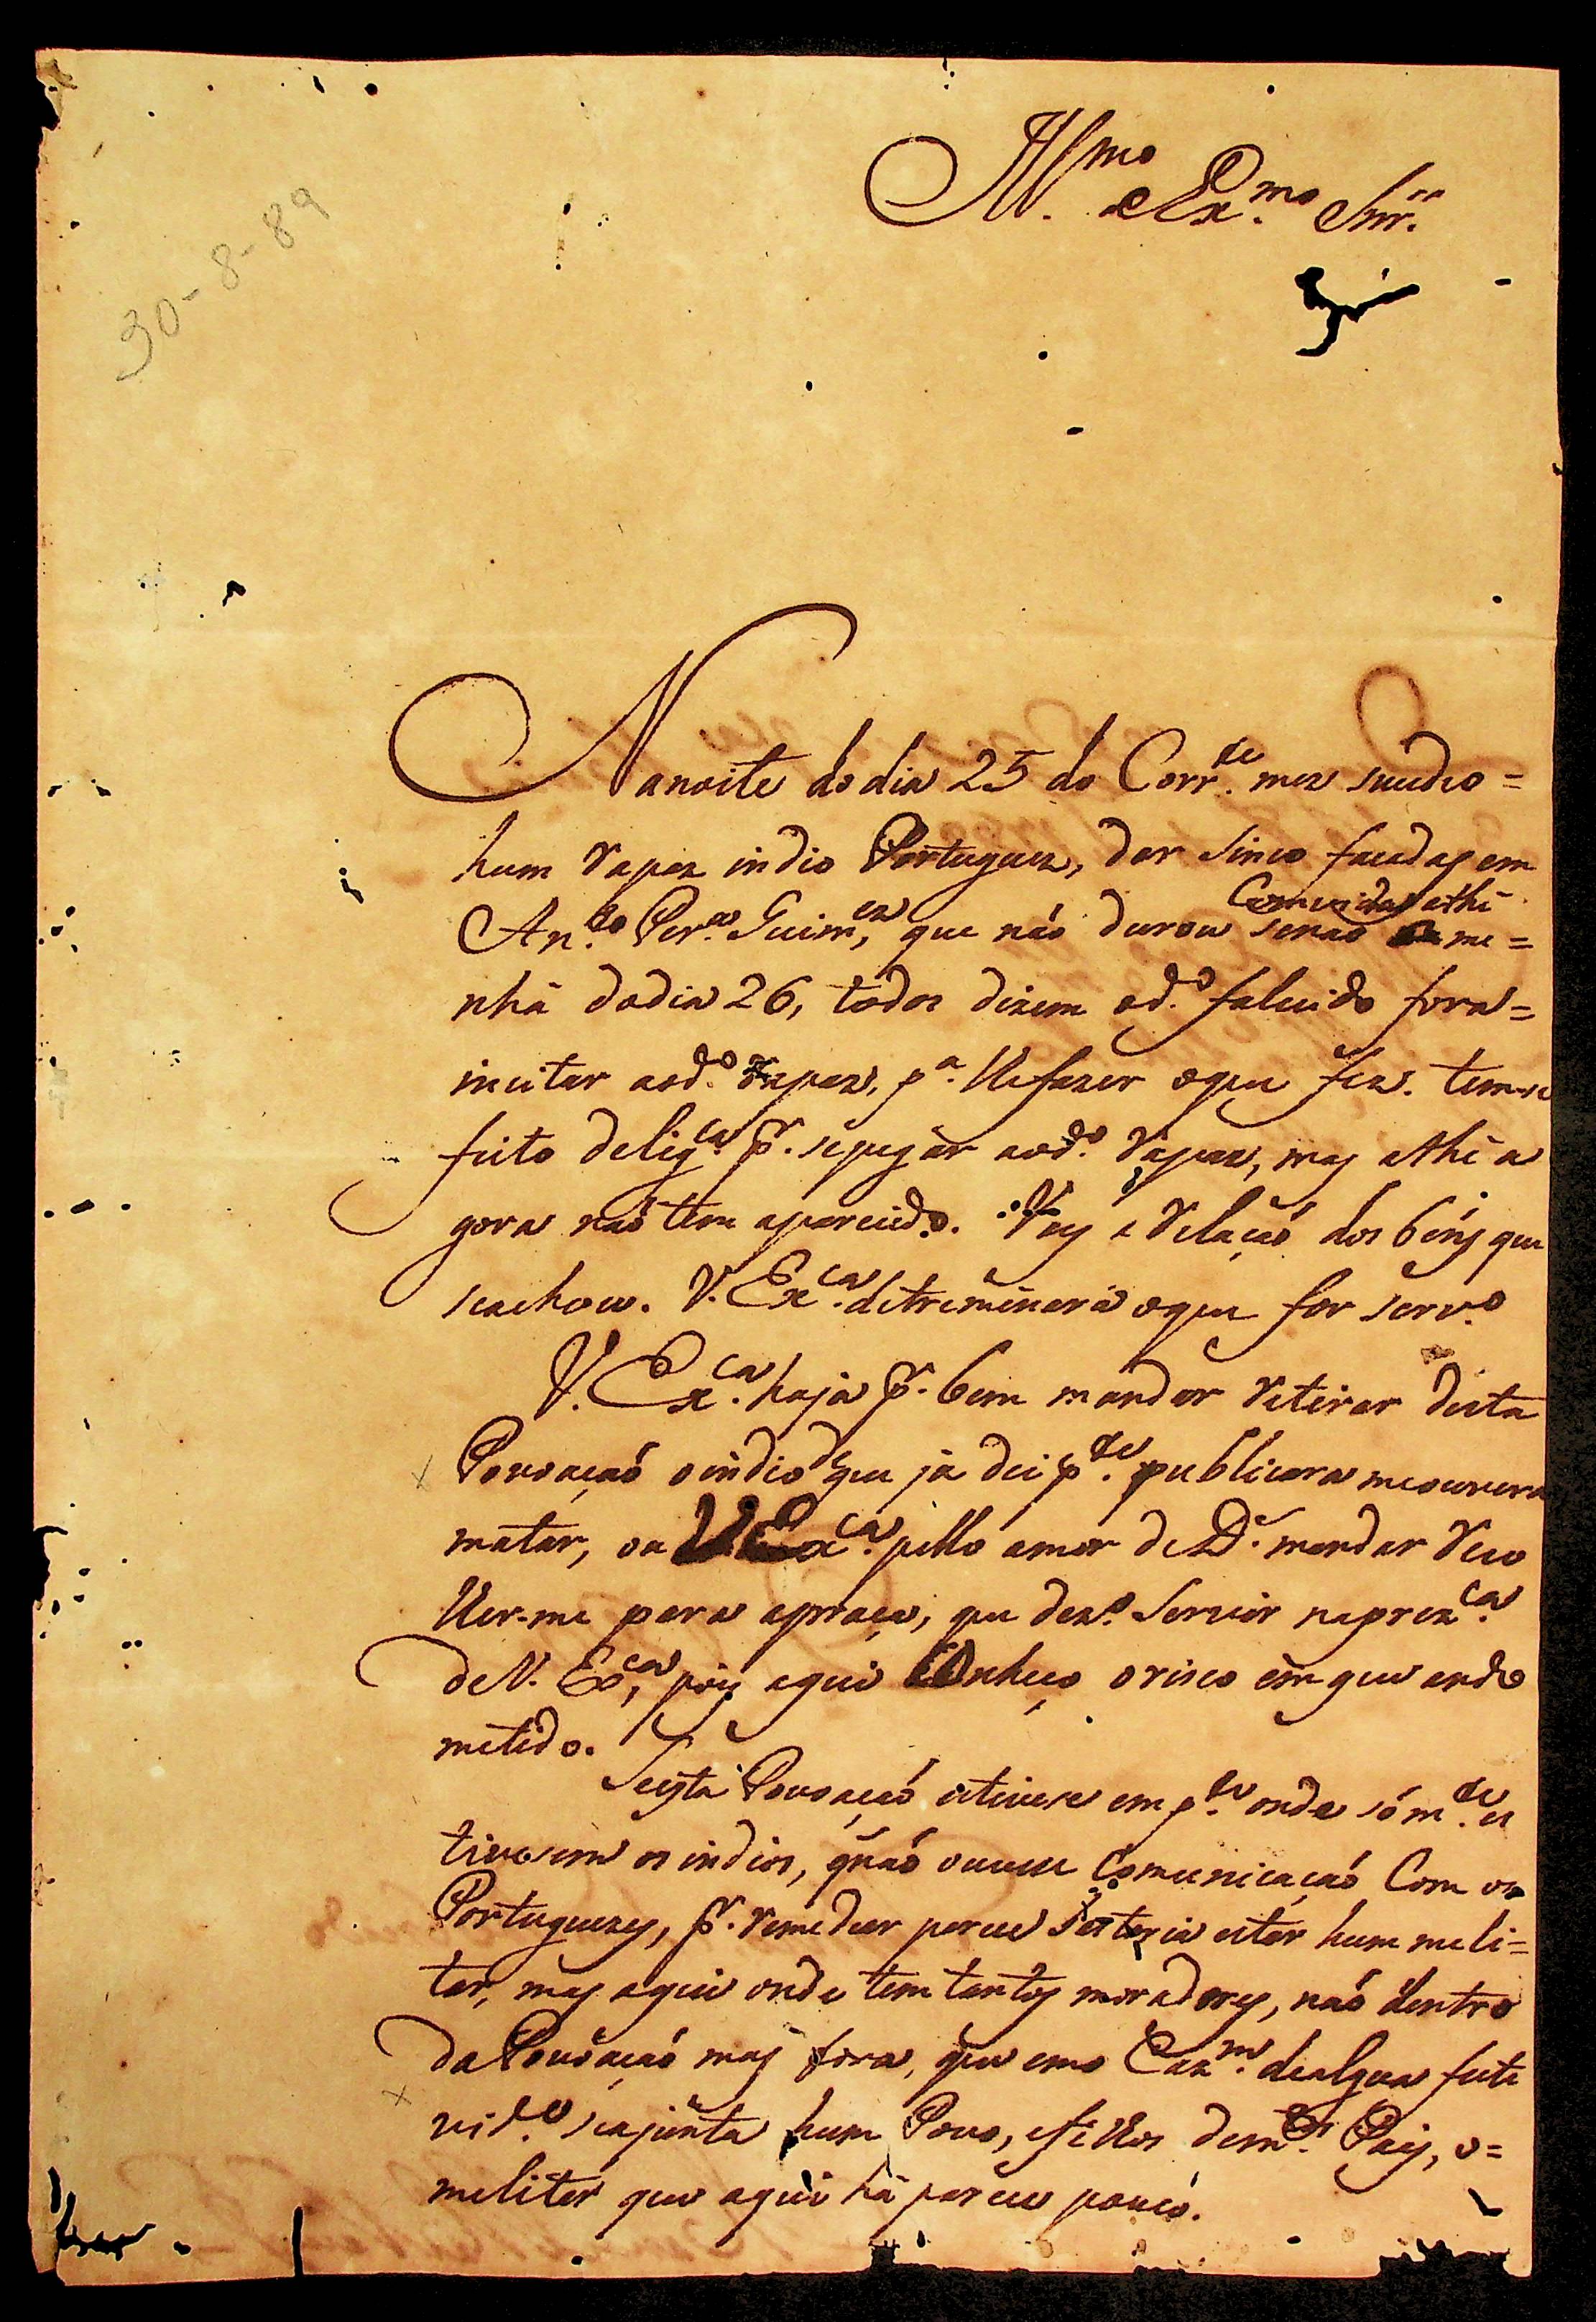 Ill.mo e Ex.mo Snr.
30-8-89
Na noite do dia 25 do Corr.te mez sucedeo =
hum Rapaz indio Portuguez, dar sinco facadas em
Com vida athe
An.to Per.a Guim.es, que não durou senão a me =
nhã do dia 26, todos dizem o d.o falecido fora =
incitar ao d.o Rapaz, p.a lhe fazer o que fez. tem-se
feito delig.ca p.r se pegar ao d.o Rapaz, mas athe a
gora não tem aparecido. Vay a Relação dos bens que
se achou. V. Ex.ca detreminará o que for serv.o
V. Ex.ca haja p.r bem mandar Retirar desta
Povoação o indio de que já dei p.te publicara me avera
matar, ou V. Ex.ca pello amor de D.s mandar Reco
lher-me para a praça, que dez.o Servir na prez.ca
de V. Ex.ca, pois aqui Conheço o risco em que ando
metido.
Se esta Povoação estivese em p.te onde sóm.te es
tivesem os indios, q não ouvese Comunicação Com os
Portuguezes, p.r Remedear parece bastaria estar hum meli =
tar, mas aqui onde tem tantos moradores, não dentro
da Povoação mas fora, que em o Caz.m de algua feste
vid.e se ajunta hum Povo, e filhos de m.tos Pais, o =
melitar que aqui há parece pouco.